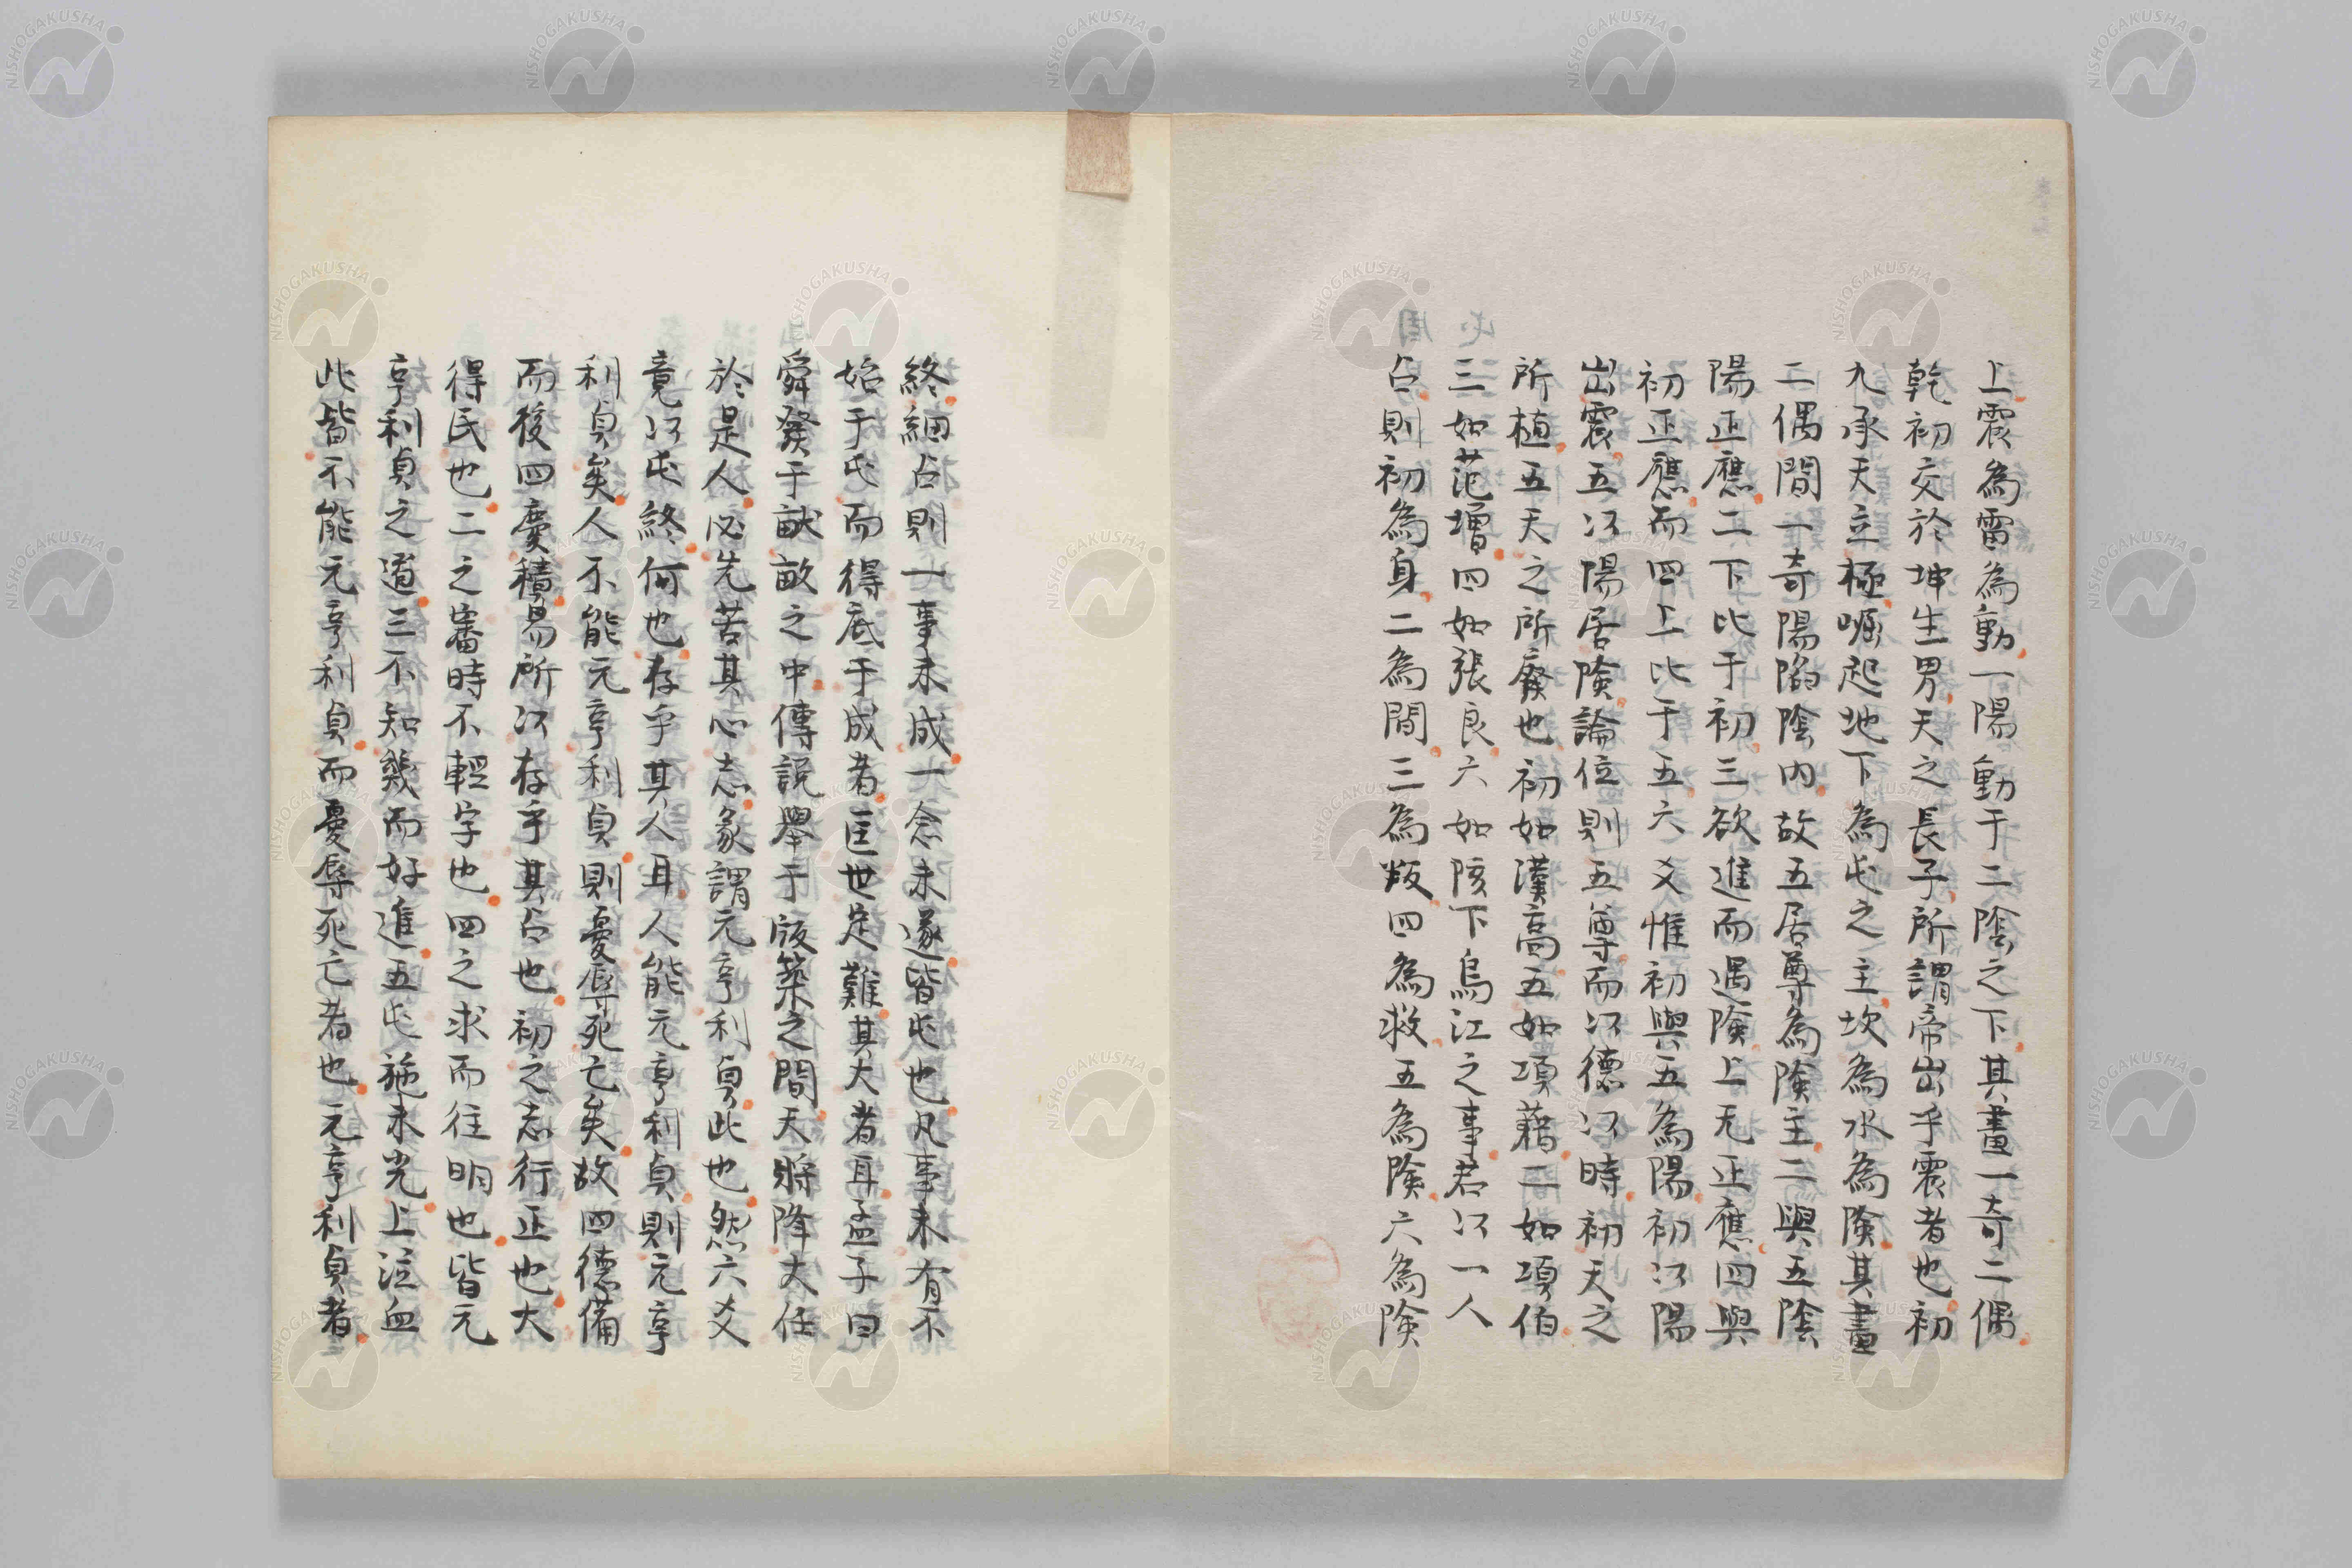 上震為雷為動一陽動于二陰之下其畫一奇二偶
乾初交於坤生男天之長子所謂帝出乎震者也初
九承天立極崛起地下為屯之主坎為水為險其畫
二偶間一奇陽陷陰内故五居尊為險主二與五陰
陽正應二下比于初三欲進而遇險上无正應四與
初正應而四上比于五六爻惟初與五為陽初以陽
出震五以陽居險論位則五尊而以德以時初天之
所植五天之所廢也初如漢高五如項藉二如項伯
三如范增四如張良六如陔下烏江之事君以一人
占則初為身二為間三為叛四為救五為險六為險
終細占則一事未成一念未遂皆屯也凡事未有不
始于屯而得底于成者匡世定難其大者耳孟子曰
舜發于畎畝之中傳説舉于版築之間天將降大任
於是人必先苦其心志彖謂元亨利貞此也然六爻
竟以屯終何也存乎其人耳人能元亨利貞則元亨
利貞矣人不能元亨利貞則憂辱死亡矣故四德備
而後四慶積易所以存乎其占也初之志行正也大
得民也二之審時不輕字也四之求而往明也皆元
亨利貞之道三不知幾而好進五屯施未光上泣血
此皆不能元亨利貞而憂辱死亡者也元亨利貞者
NISHOGAKUSHA